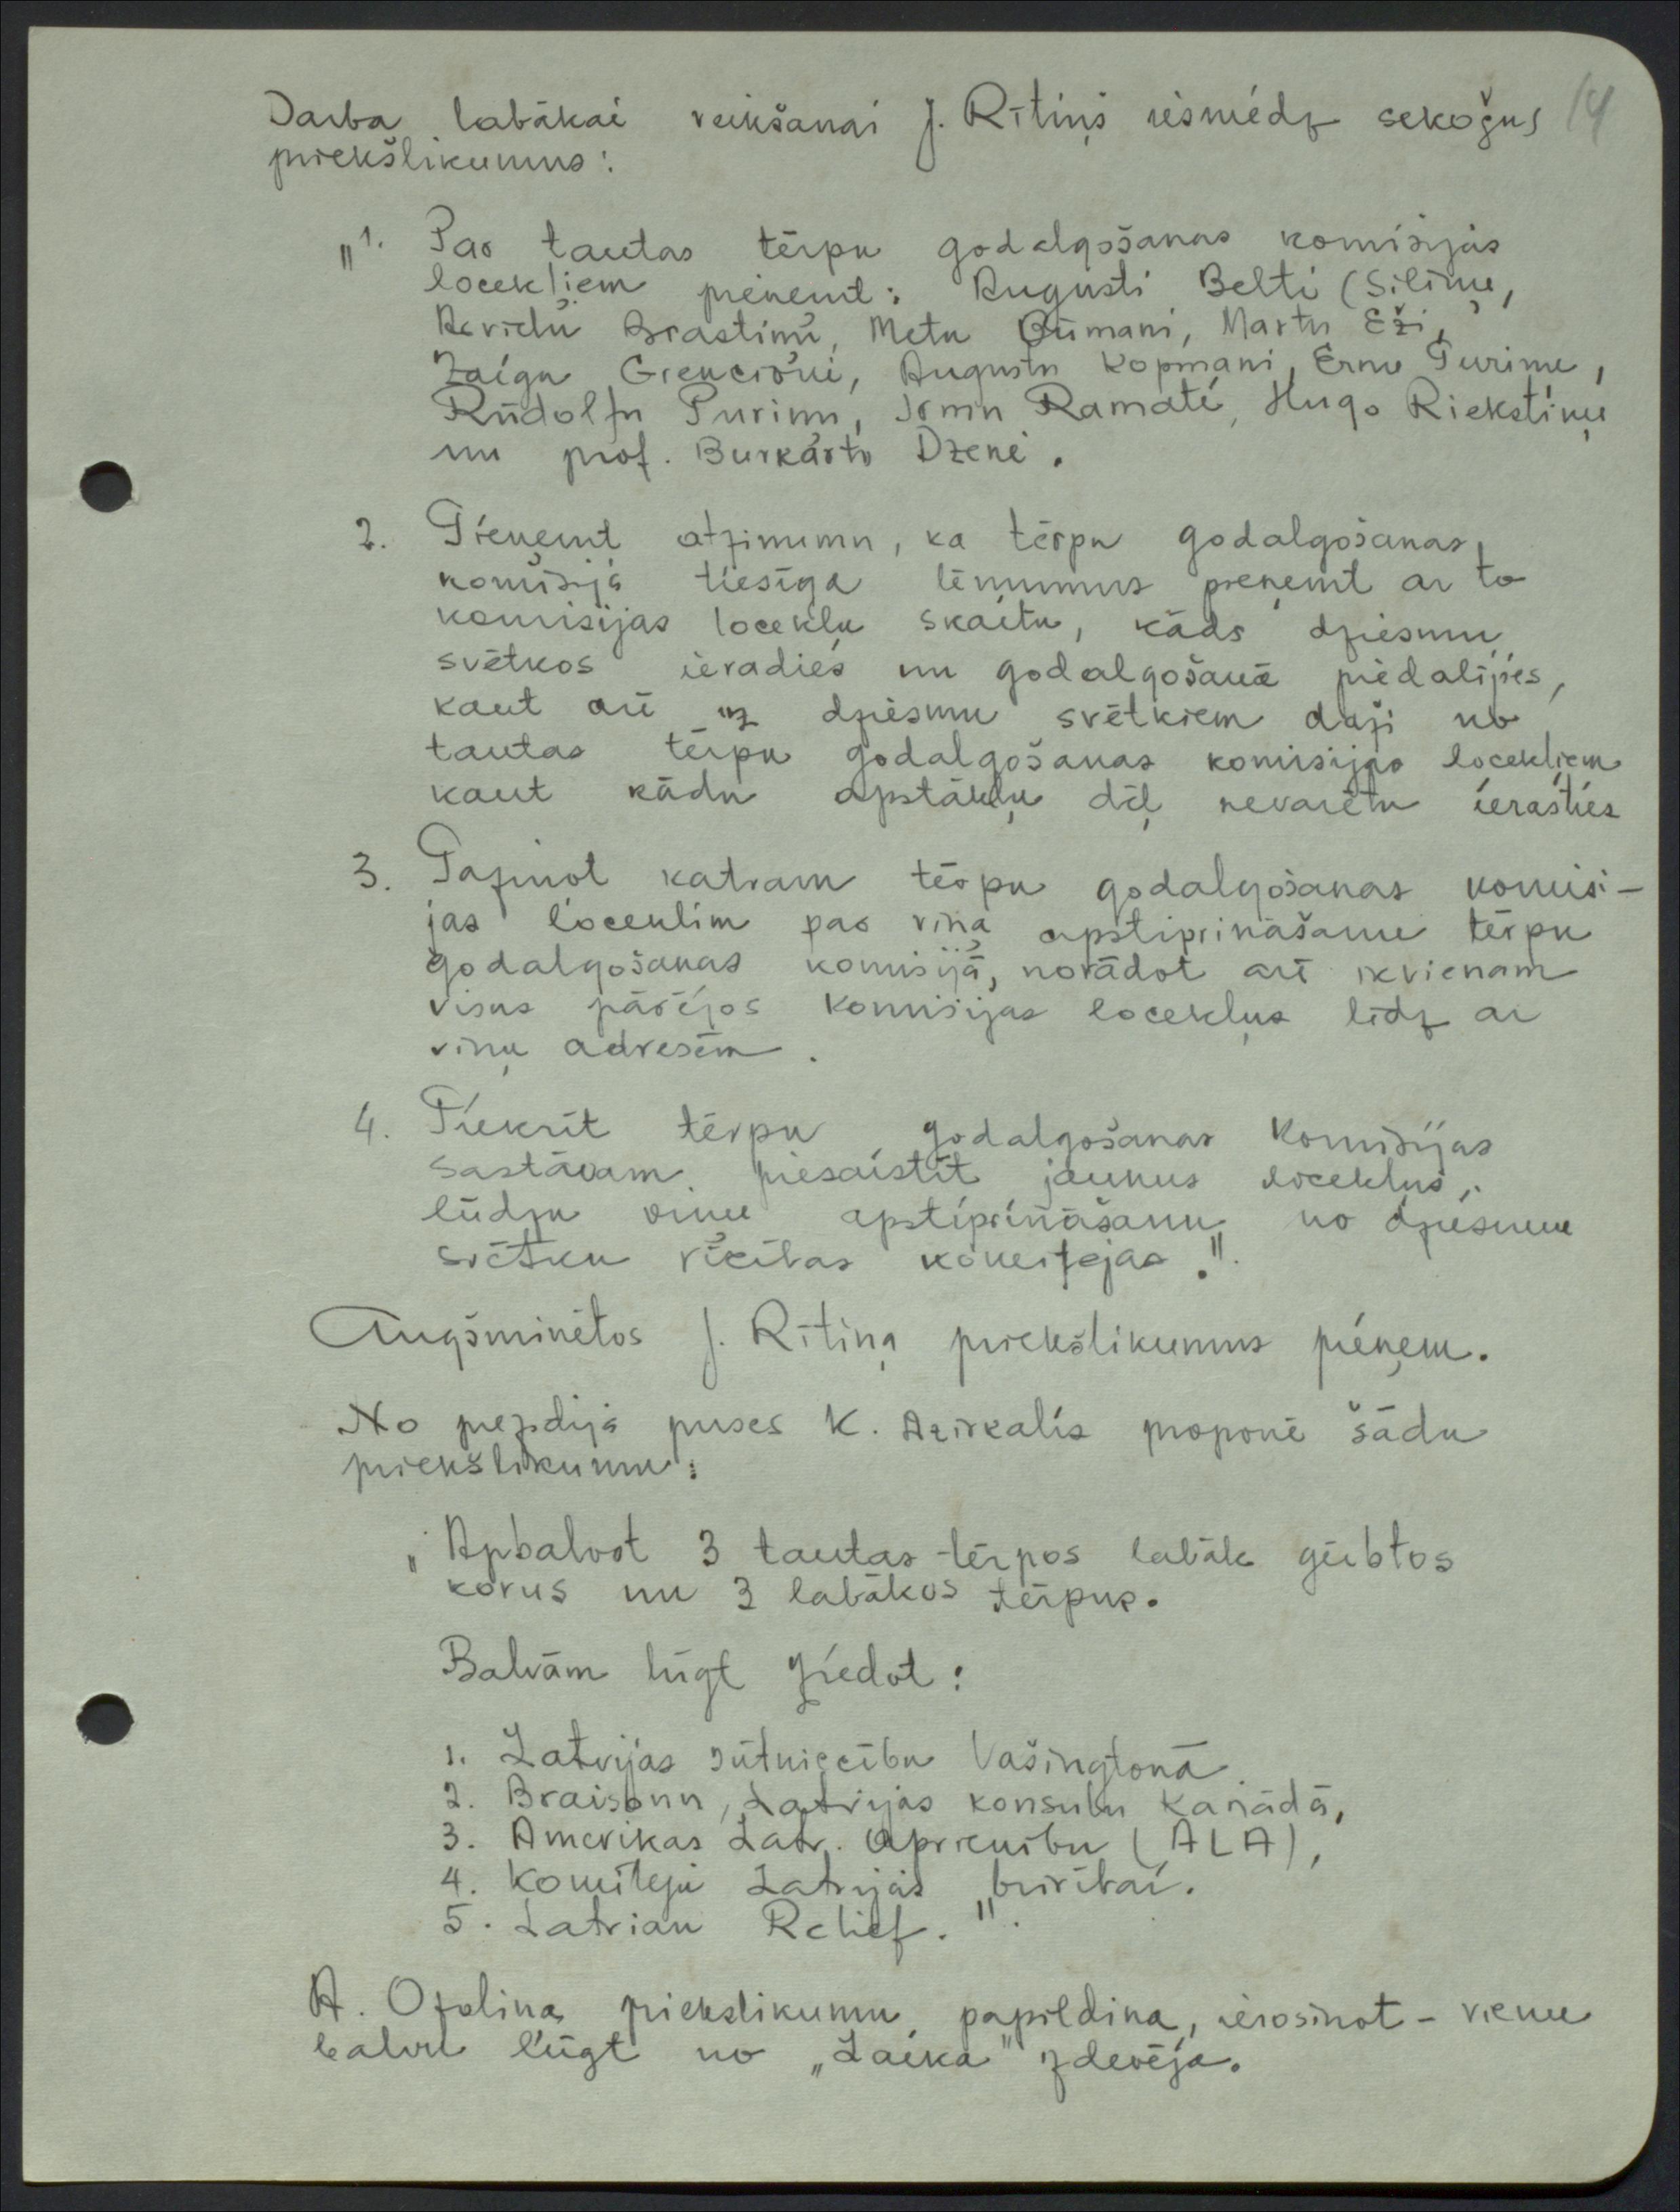 14
Darba labākai veikšanai J. Rītiņš iesniedz sekojošus
priekšlikumus:
"1. Par tautas tērpu godalgošanas komisijas
locekļiem pieņemt: Augusti Belti (Siliņu,
Arvīdu Brastiņu, Metu Būmani, Martu Eži,
Zaigu Grencioni, Augustu Kopmani, Ernu Puriņu,
Rūdolfu Puriņu, Irmu Ramati, Hugo Riekstiņu
un prof. Burkartu Dzeni.
2. Pieņemt atzinumu, ka tērpu godalgošanas
komisija tiesīga lēmumus pieņemt ar to
komisijas locekļu skaitu, kāds dziesmu
svētkos ieradies un godalgošanā piedalījies,
kaut arī uz dziesmu svētkiem daži no
tautas tērpu godalgošanas komisijas locekļiem
kaut kādu apstākļu dēļ nevarētu ierasties
3. Paziņot katram tērpu godalgošanas komisi-
jas loceklim par viņa apstiprināšanu tērpu
godalgošanas komisijā, norādot arī ikvienam
visus pārējos komisijas locekļus līdz ar
viņu adresēm.
4. Piekrīt tērpu godalgošanas komisijas
sastāvam piesaistīt jaunus locekļus,
lūdzu viņu apstiprināšanu no dziesmu
svētku rīcības komitejas.".
Augšminētos J. Rītiņa priekšlikumus pieņem.
No prezidija puses K. Dzirkalis proponē šādu
priekšlikumu:
"Apbalvot 3 tautas tērpos labāk ģērbtos
korus un 3 labākos tērpus.
Balvām lūgt ziedot:
1. Latvijas sūtniecību Vašingtonā
2. Braisonu, Latvijas konsulu Kanādā,
3. Amerikas Latv. Apvienību (ALA),
4. Komiteju Latvijas brīvībai.
5. Latvian Relief.".
A. Ozoliņa priekšlikumu papildina, ierosinot - vienu
balvu lūgt no "Laika" izdevēja.